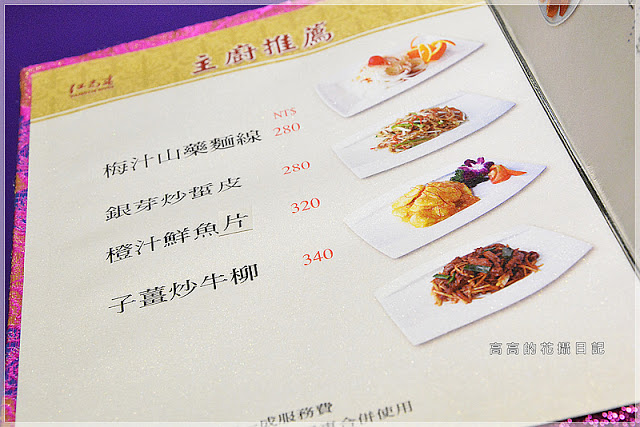 主廚推薦
NT$
梅汁山藥麵線 280
銀芽炒蜇皮 280
橙汁鮮魚片 320
子薑炒牛柳 340
高高的花攝日記
成服務費
合併使用